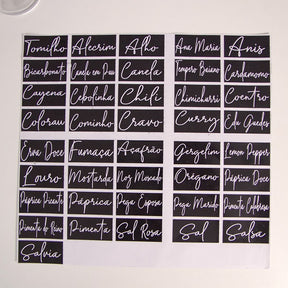 Tomilho Alecrim Alho Ana Maria Anis
Bicarbonato Canela em Pau Canela Tempero Baiano Cardamomo
Cayena Cebolinha Chili Chimichurri Coentro
Colorau Cominho Cravo Curry Edu Guedes
Erva Doce Fumaça Açafrão Gergelim Lemon Pepper
Louro Mostarda Noz Moscada Orégano Páprica Doce
Páprica Picante Páprica Pega Esposa Pega Marido Pimenta Calabresa
Pimenta do Reino Pimenta Sal Rosa Sal Salsa
Salvia